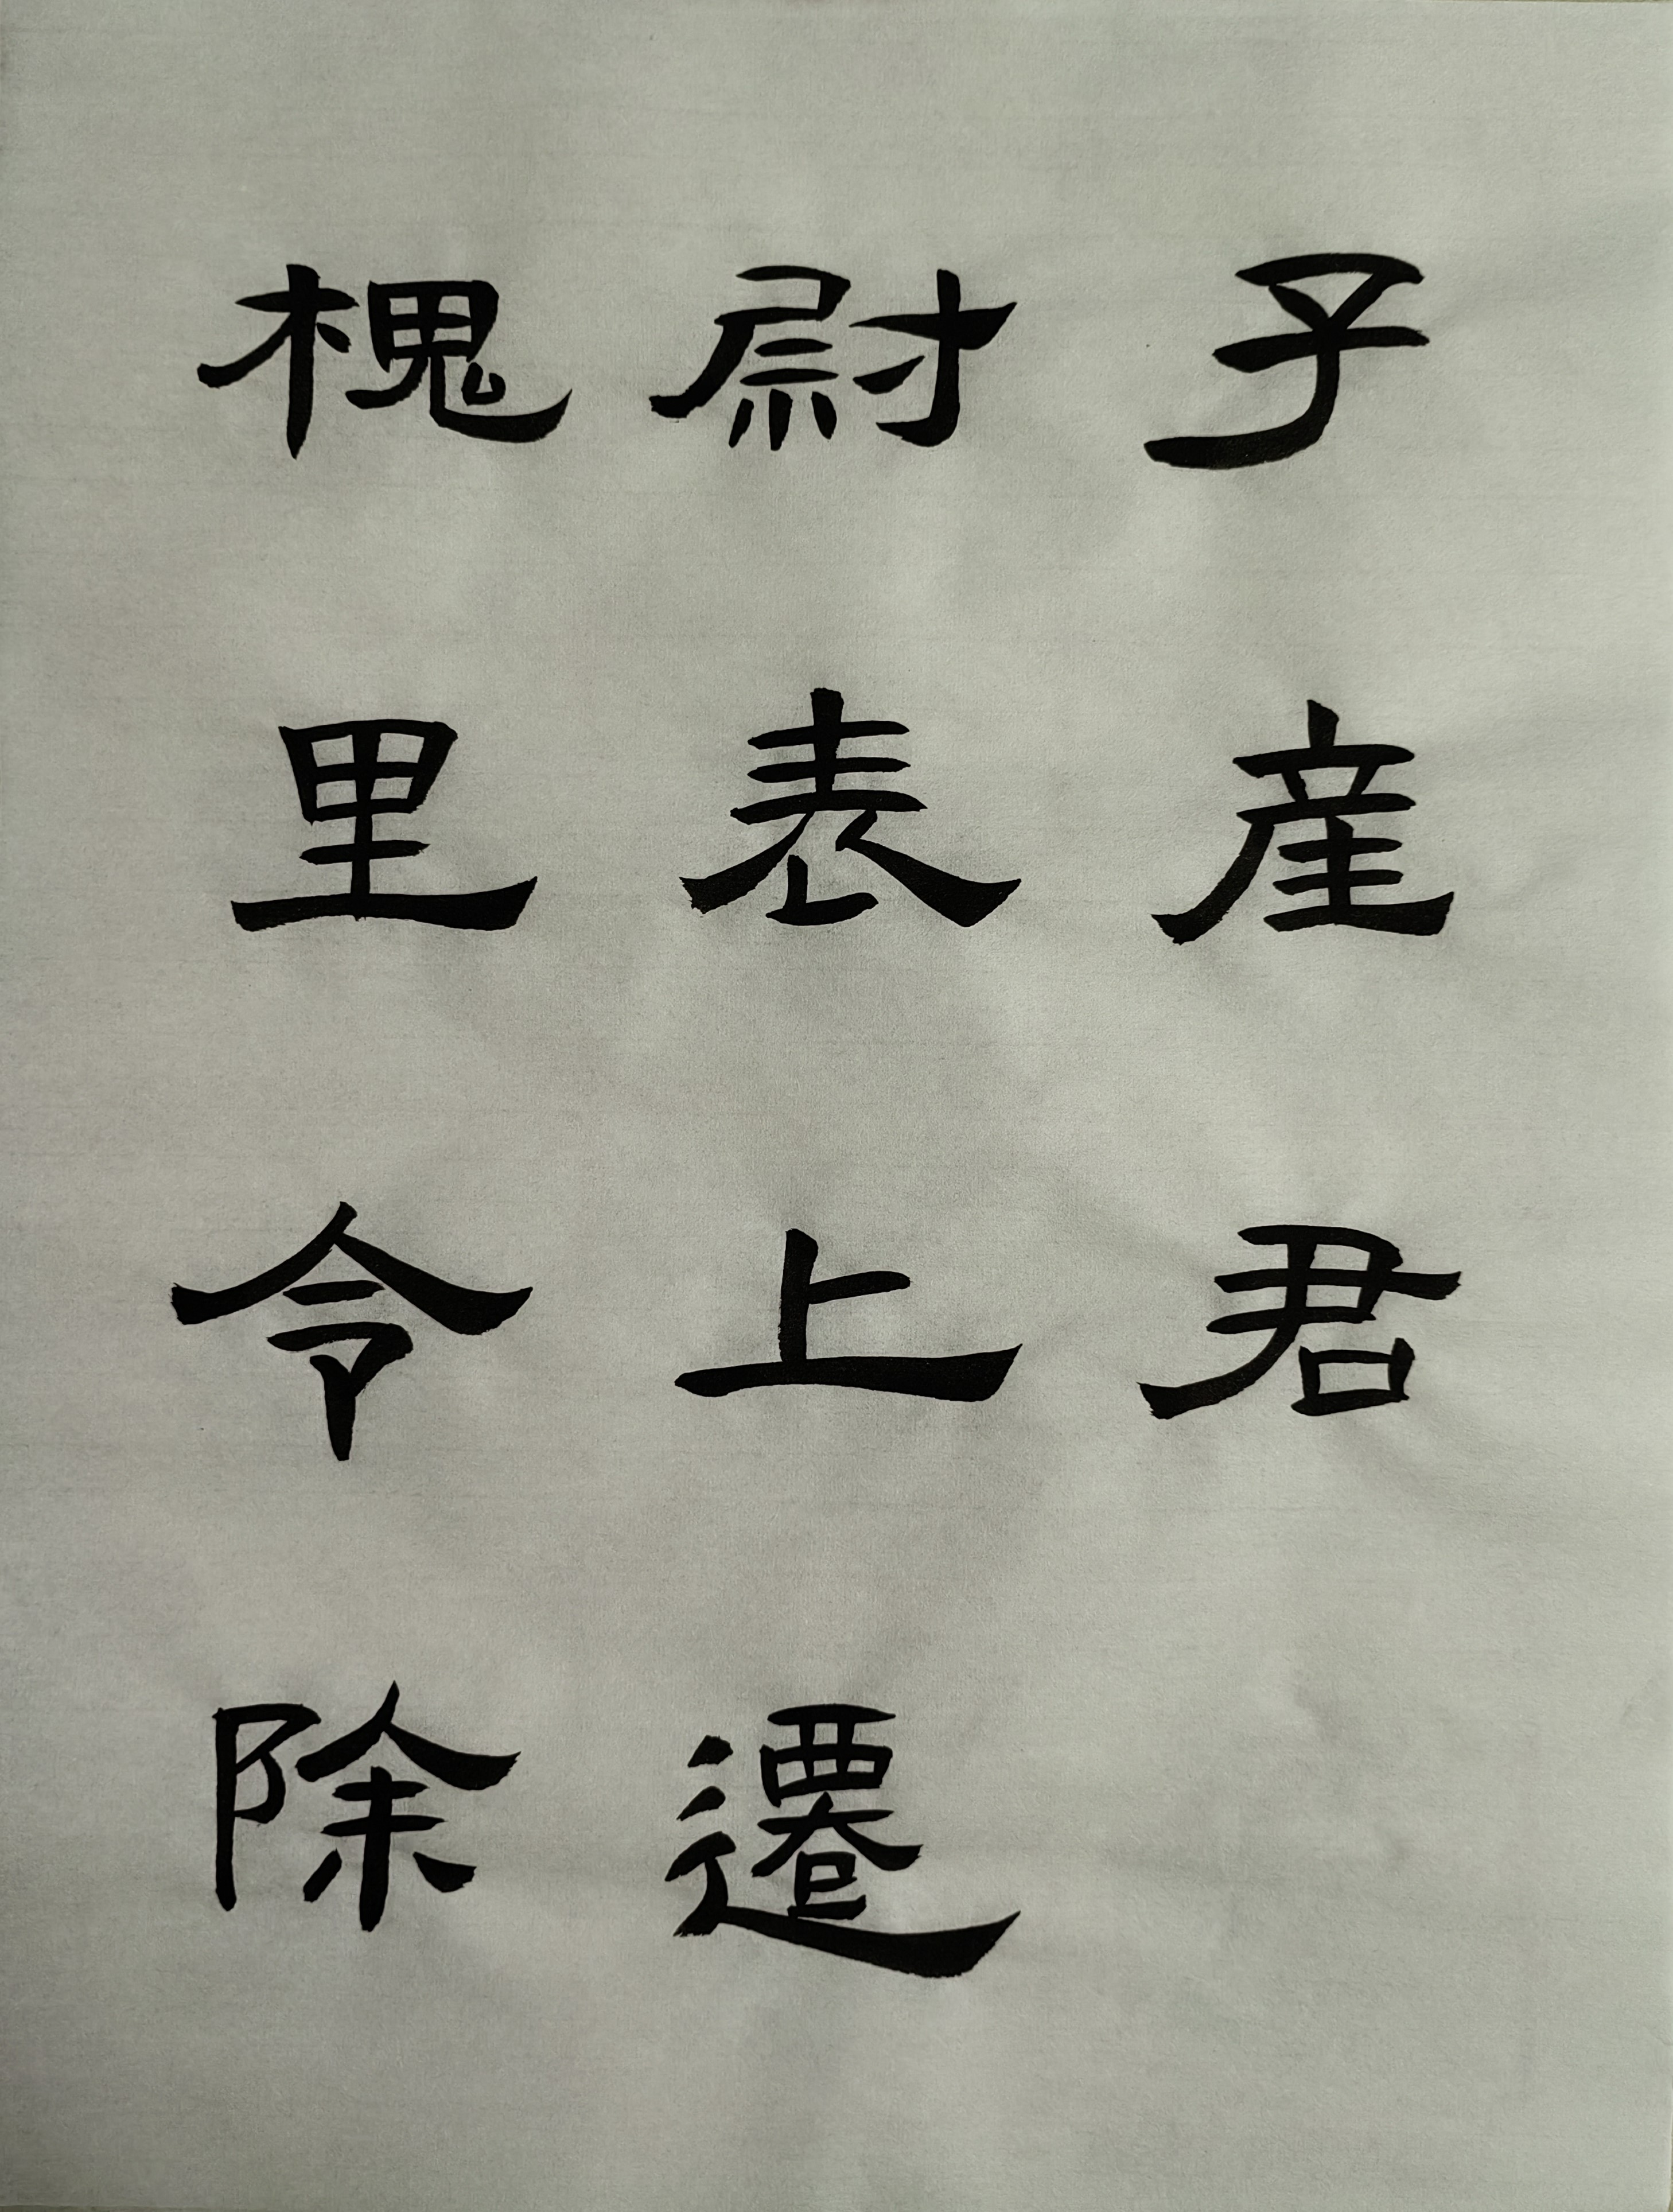 子產君
尉表上遷
槐里令除